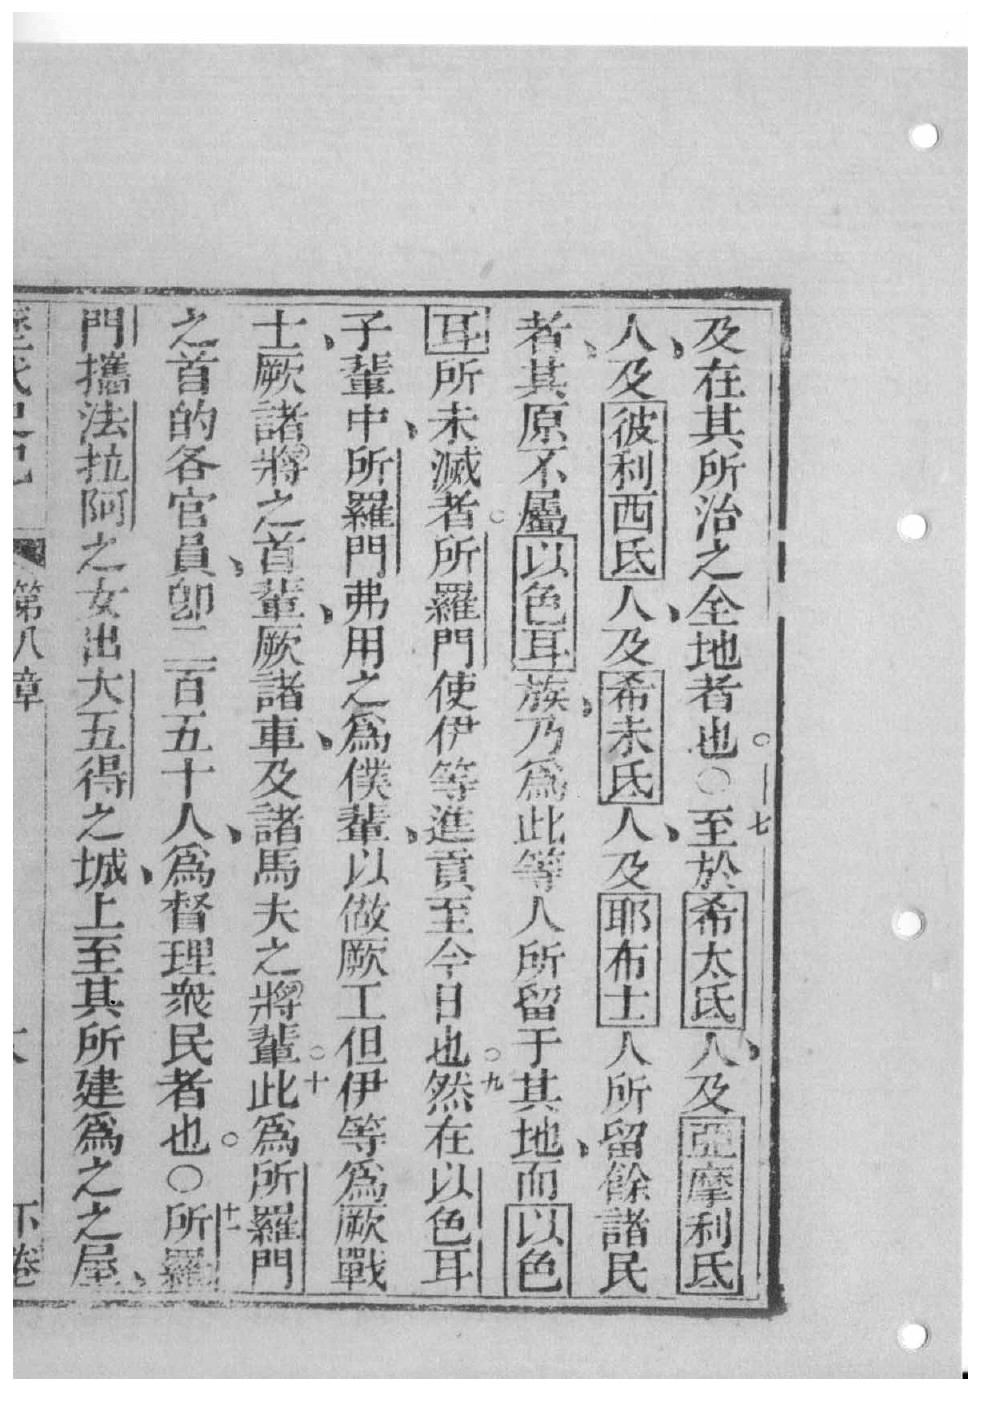 及在其所治之全地者也。○七至於希太氏人、及亞摩利氏
人、及彼利西氏人、及希未氏人、及耶布士人所留餘諸民
者、其原不屬以色耳族、乃爲此等人所留于其地、而以色
耳所未滅者。所羅門使伊等進貢至今日也。九然在以色耳
子輩中、所羅門弗用之爲僕輩、以做厥工但伊等爲厥戰
士、厥諸將之首輩、厥諸車、及諸馬夫之將輩。十此爲所羅門
之首的各官員、卽二百五十人、爲督理衆民者也。○十一所羅
門攜法拉阿之女出大五得之城、上至其所建爲之之屋、
第八章 下卷